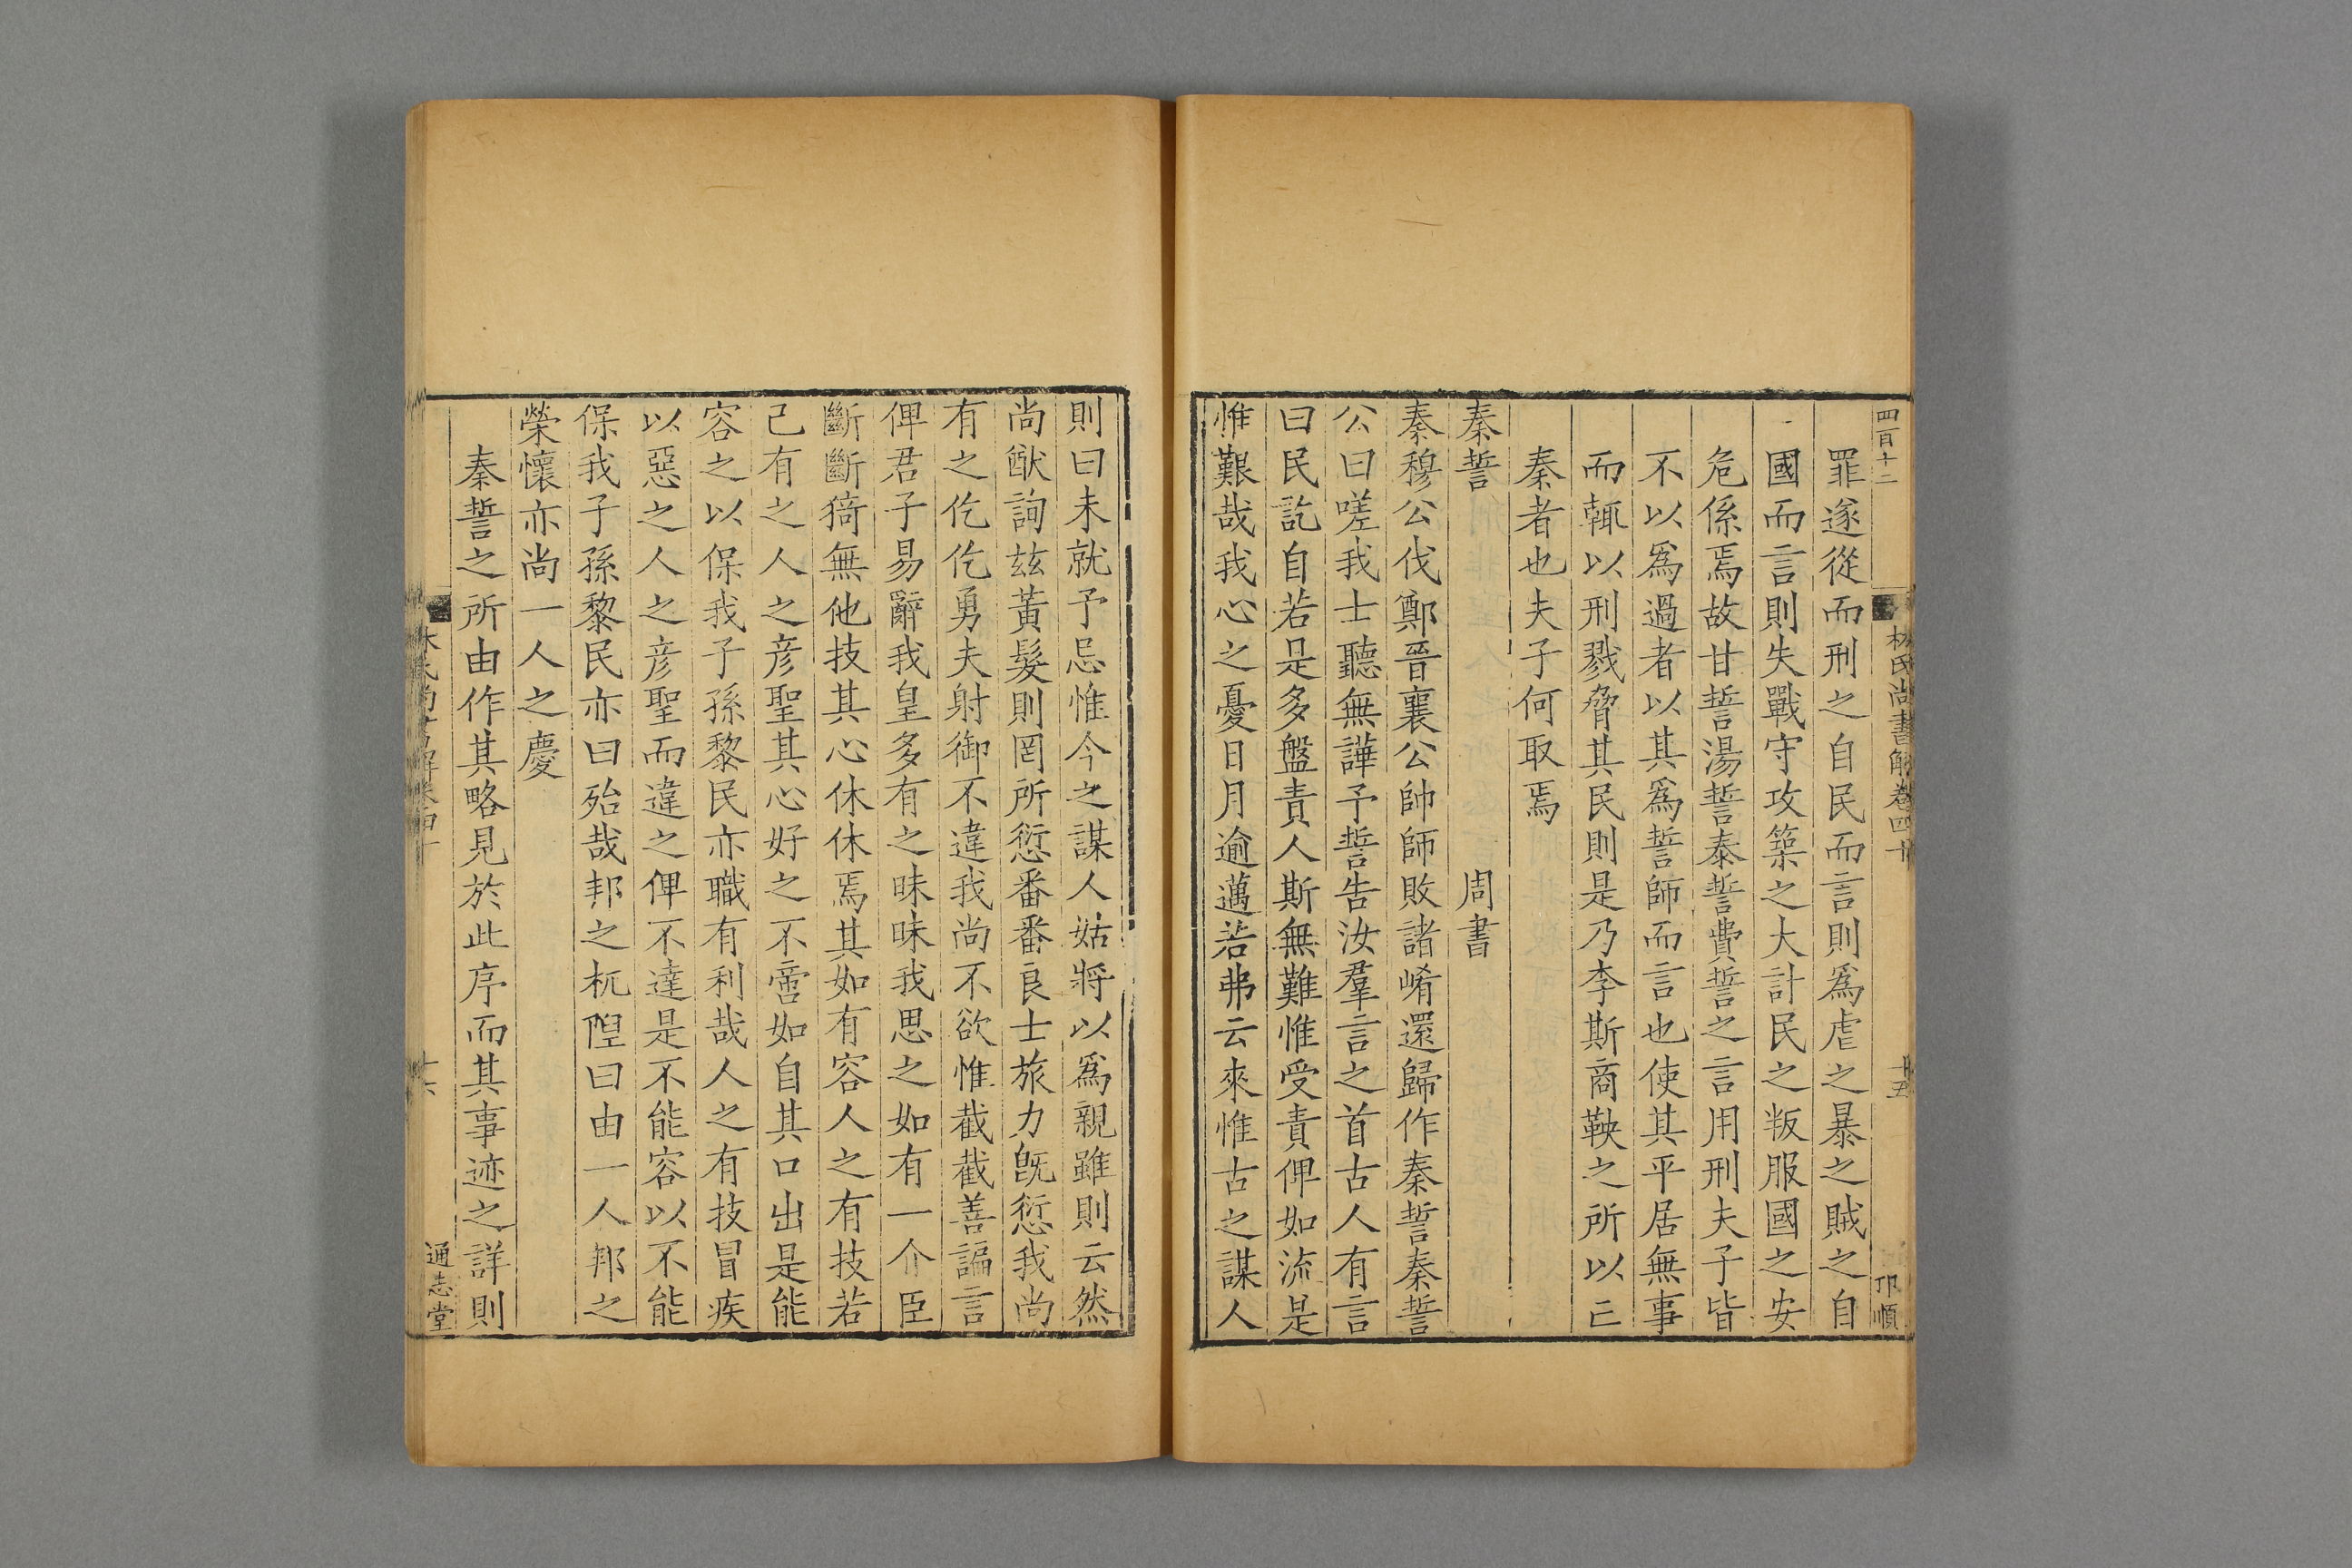 四百十二
林氏尚書解卷四十
十五
卭順
罪遂從而刑之自民而言則爲虐之暴之賊之自
國而言則失戰守攻築之大計民之叛服國之安
危係焉故甘誓湯誓泰誓費誓之言用刑夫子皆
不以爲過者以其爲誓師而言也使其平居無事
而輒以刑戮脅其民則是乃李斯商鞅之所以亡
秦者也夫子何取焉
秦誓 周書
秦穆公伐鄭晉襄公帥師敗諸崤還歸作秦誓秦誓
公曰嗟我士聽無譁予誓告汝羣言之首古人有言
曰民訖自若是多盤責人斯無難惟受責俾如流是
惟艱哉我心之憂日月逾邁若弗云來惟古之謀人
則曰未就予忌惟今之謀人姑將以爲親雖則云然
尚猷詢茲黃髮則罔所愆番番良士旅力旣愆我尚
有之仡仡勇夫射御不違我尚不欲惟截截善諞言
俾君子易辭我皇多有之昧昧我思之如有一介臣
斷斷猗無他技其心休休焉其如有容人之有技若
己有之人之彦聖其心好之不啻如自其口出是能
容之以保我子孫黎民亦職有利哉人之有技冒疾
以惡之人之彦聖而違之俾不達是不能容以不能
保我子孫黎民亦曰殆哉邦之杌隉曰由一人邦之
榮懷亦尚一人之慶
秦誓之所由作其略見於此序而其事迹之詳則
十六
通志堂